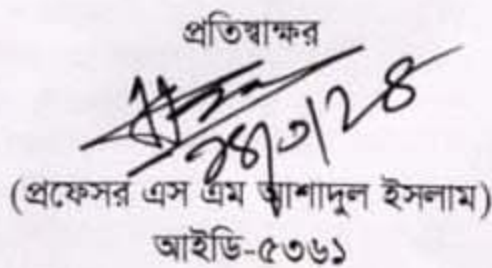 প্রতিস্বাক্ষর
(প্রফেসর এস এম আশাদুল ইসলাম)
আইডি-৫৩৬১